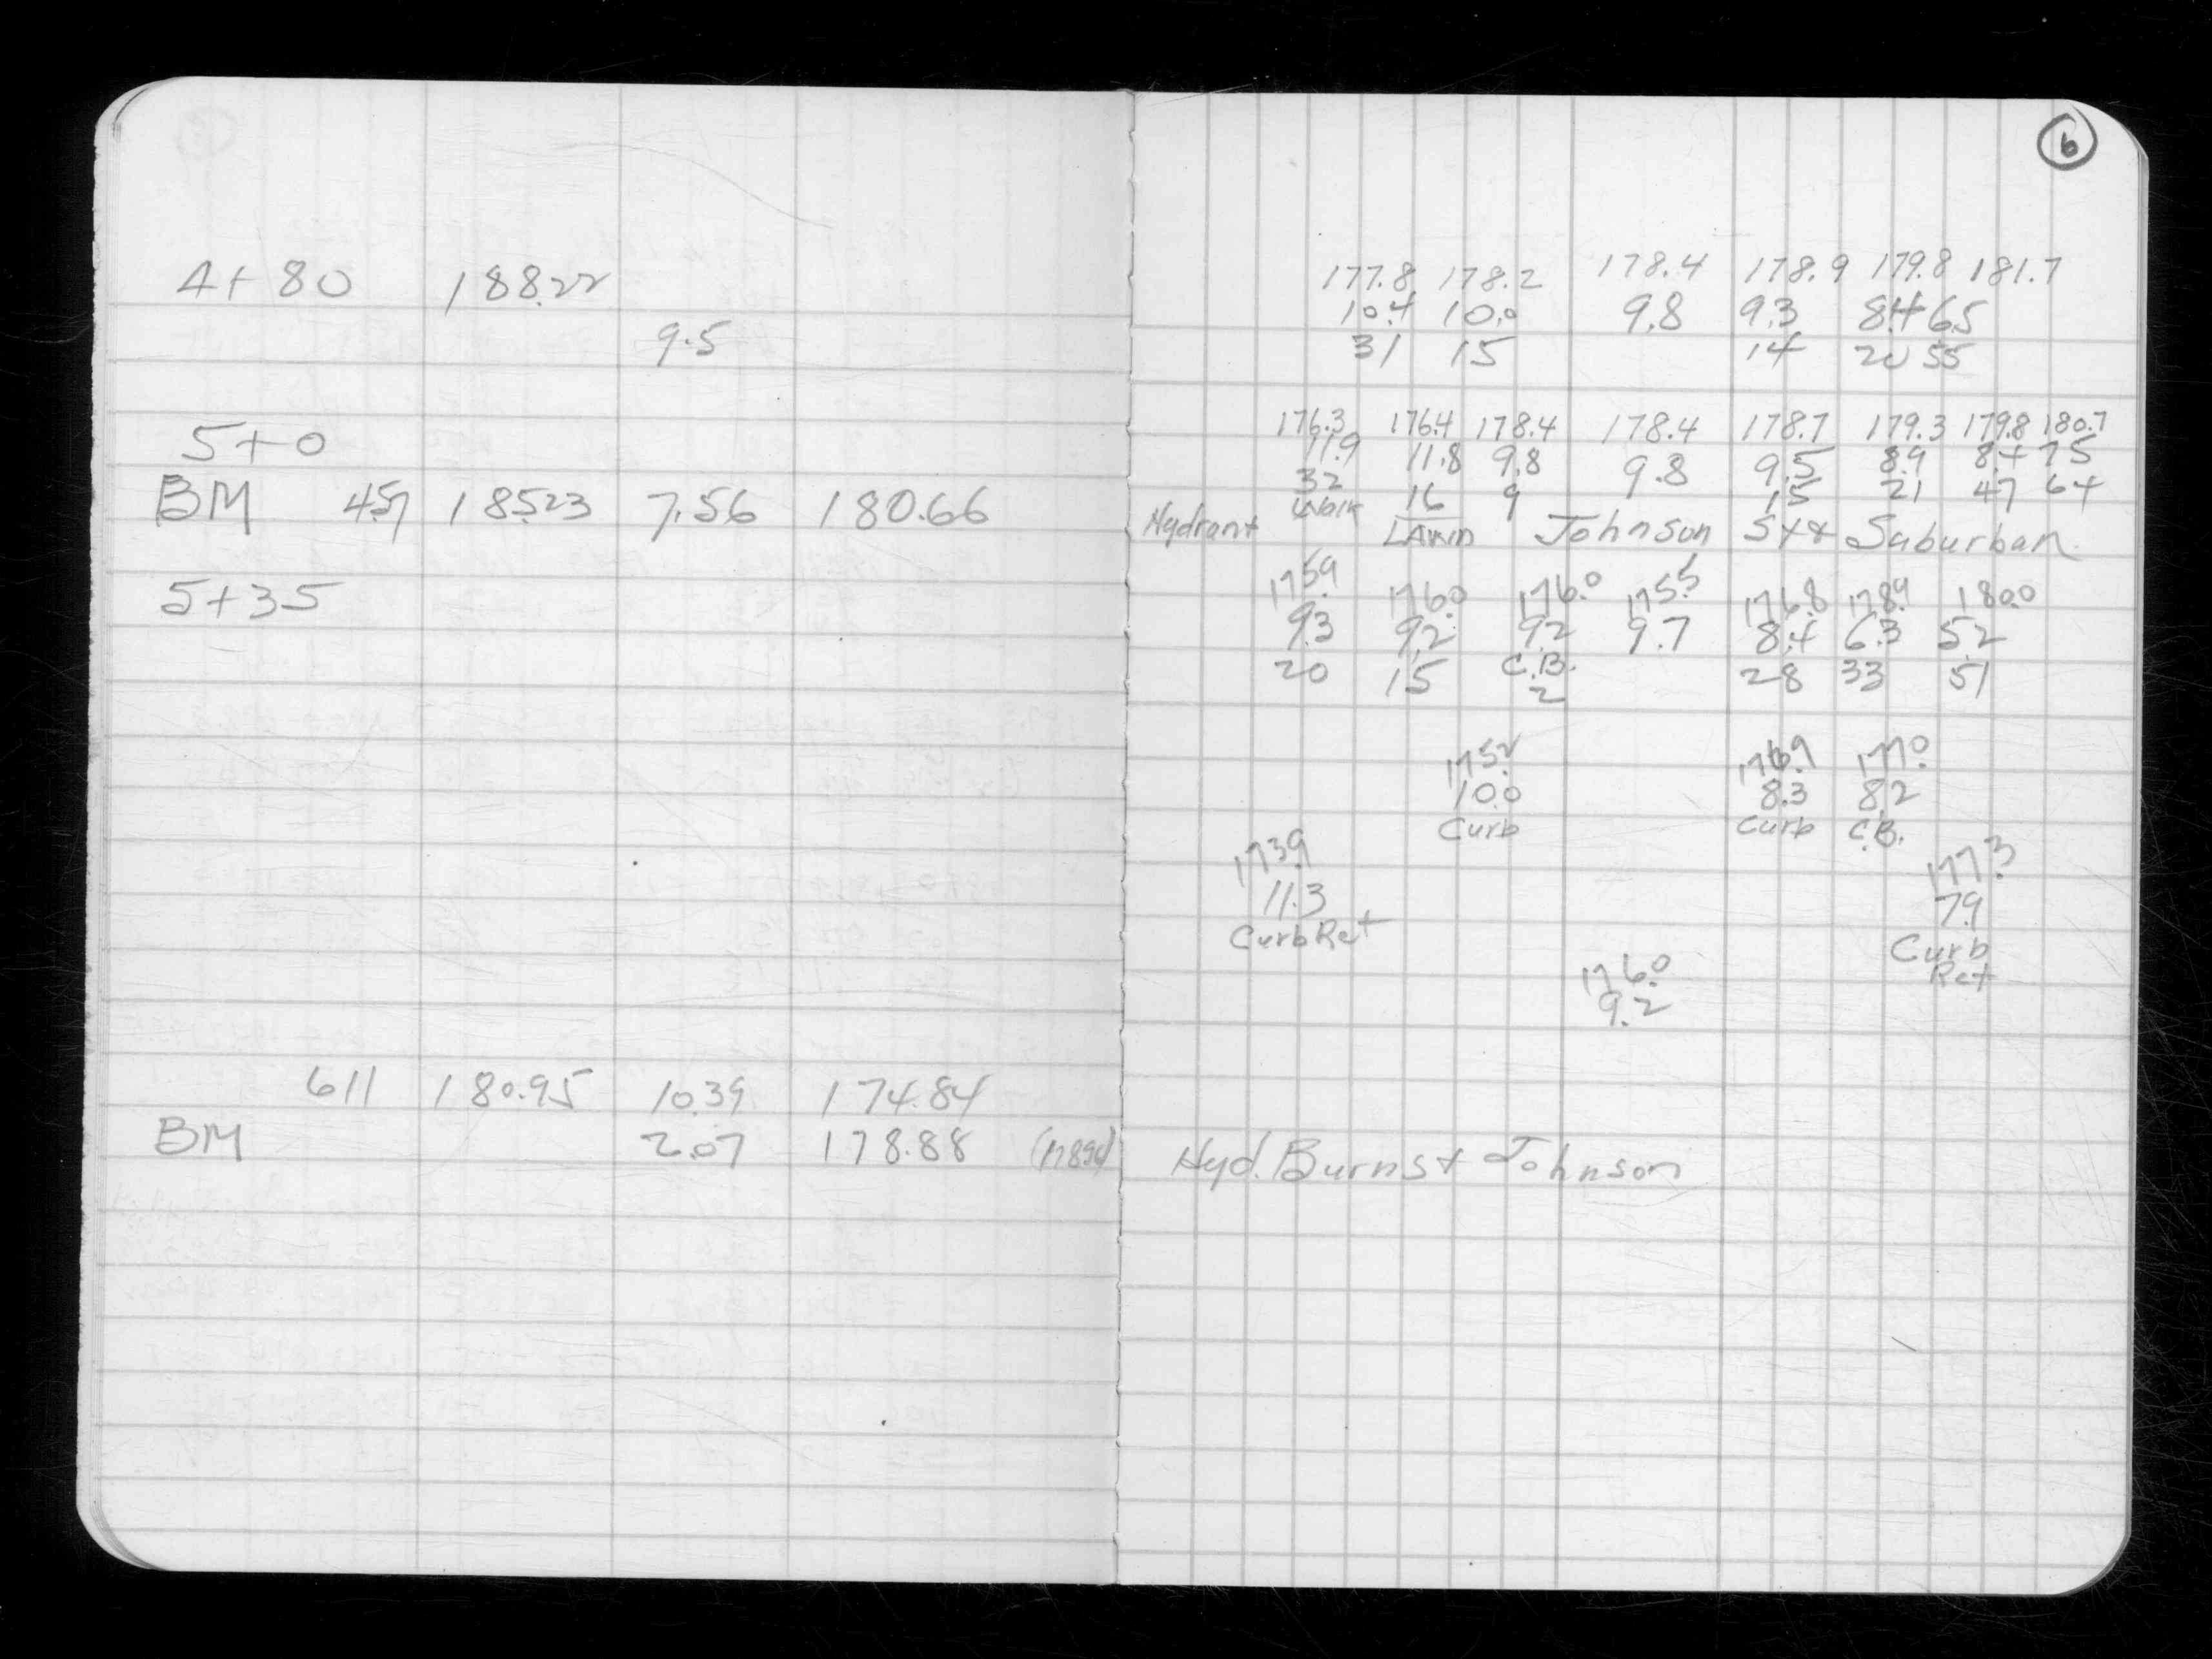 6
4+80 188.22
9.5
5+0
BM 4.57 185.23 7.56 180.66
5+35
6.11 180.95 10.39 174.84
BM 2.07 178.88
177.8 178.2 178.4 178.9 179.8 181.7
10.4 10.0 9.8 9.3 8.4 6.5
31 15 14 20 55
176.3 176.4 178.4 178.4 178.7 179.3 179.8 180.7
11.9 11.8 9.8 9.8 9.5 8.9 8.4 7.5
32 16 9 15 21 47 64
Walk
Hydrant LAWN Johnson Suburban
175.9 176.0 176.0 175.5 176.8 178.9 180.0
9.3 9.2 9.2 9.7 8.4 6.3 5.2
20 15 C.B. 28 33 51
2
175.2 176.9 177.0
10.0 8.3 8.2
Curb Curb C.B.
173.9 177.3
11.3 7.9
Curb Ret Curb
Ret
176.0
9.2
Hyd. Burns + Johnson